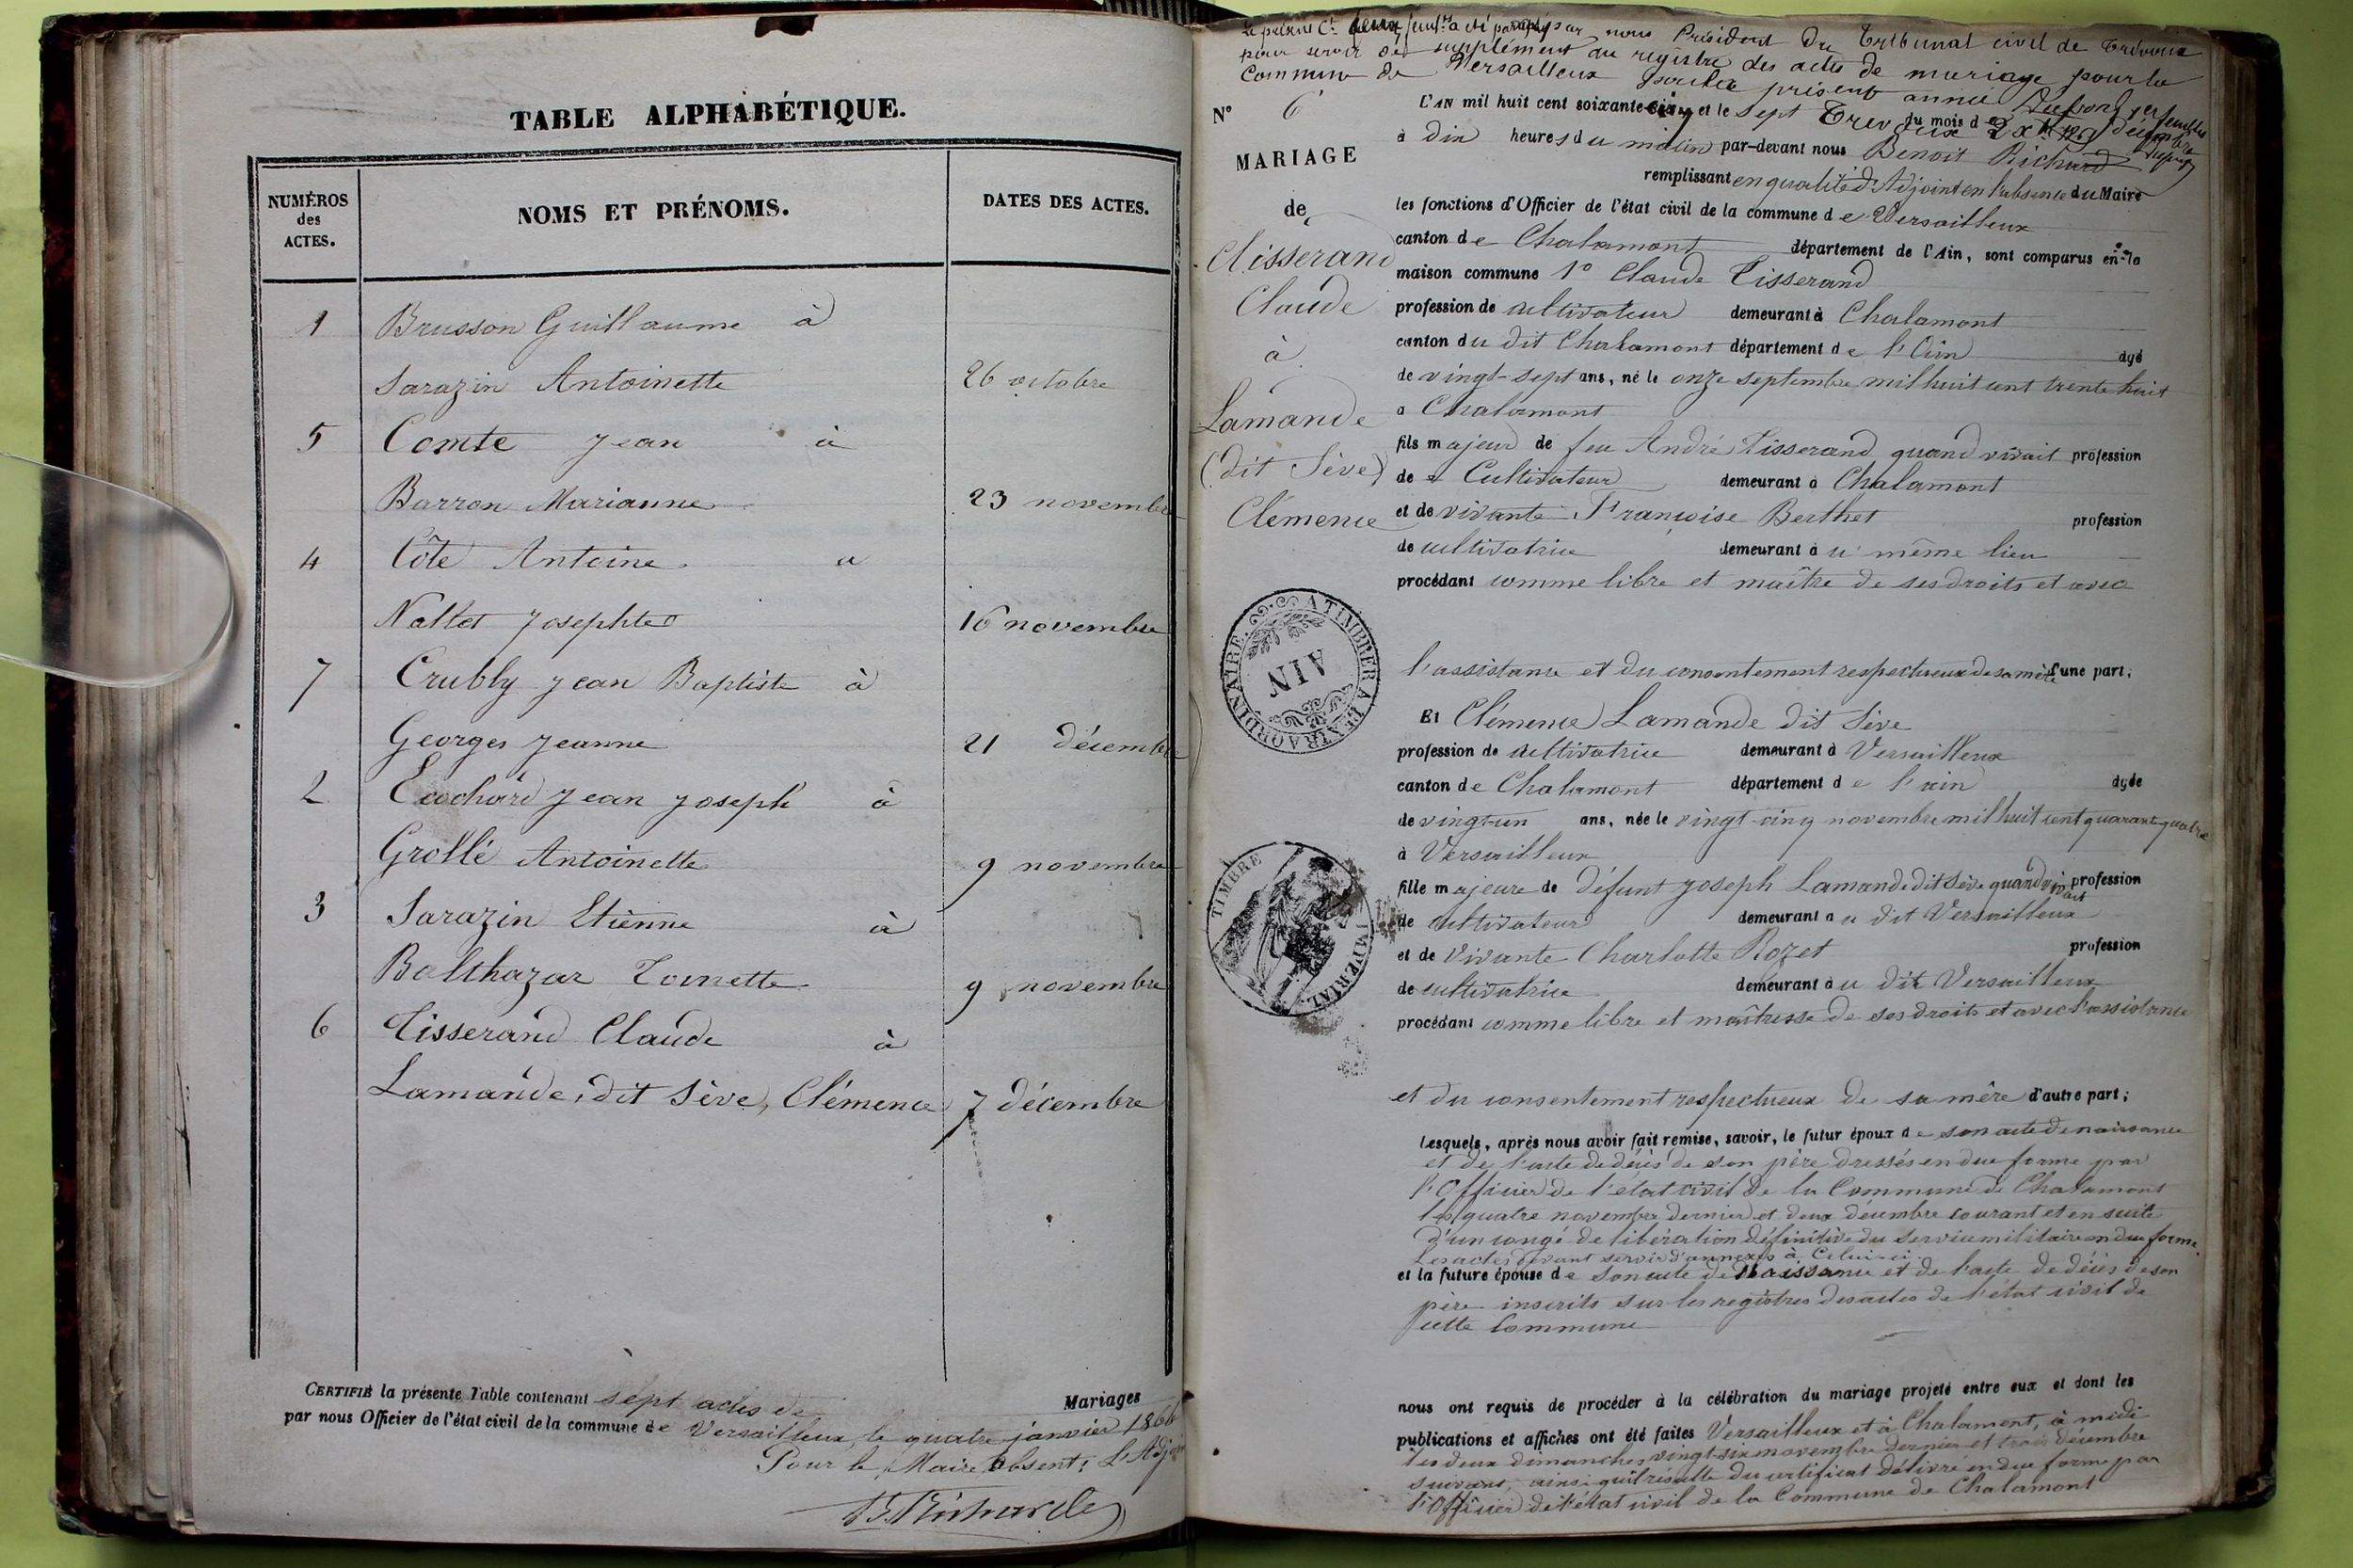 TABLE ALPHABÉTIQUE.
NUMÉROS des ACTES.
NOMS ET PRÉNOMS.
DATES DES ACTES.
1 Brusson Guillaume à
Sarazin Antoinette 26 octobre
5 Comte Jean à
Barron Marianne 23 novembre
4 Côte Antoine a
Nallet Josephte 16 novembre
7 Crubly Jean Baptiste à
Georges Jeanne 21 décembre
2 Euchard Jean Joseph à
Grollé Antoinette 9 novembre
3 Sarazin Etienne à
Balthazar Toinette 9 novembre
6 Tisserand Claude à
Lamande, dit Sève, Clémence 7 décembre
CERTIFIÉ la présente Table contenant sept actes de Mariages
par nous Officier de l'état civil de la commune de Versailleux, le quatre janvier 1866
Pour le Maire absent: L'Adjoint
B. Richarde
Le présent a été paraphé par nous Président du Tribunal civil de Trévoux
pour servir de supplément au registre des actes de mariage pour la
Commune de Versailleux présente année
N° 6
MARIAGE
de
Tisserand
Claude
à
Lamande
(dit Sève)
Clémence
A TIMBRER A L'EXTRAORDINAIRE.
AIN
TIMBRE IMPERIAL
L'AN mil huit cent soixante-cinq et le sept du mois de décembre
à dix heures du matin par-devant nous Benoit Richard
remplissant en qualité d'Adjoint en l'absence du Maire
les fonctions d'Officier de l'état civil de la commune de Versailleux
canton de Chalamont département de l'Ain, sont comparus en la
maison commune 1° Claude Tisserand
profession de cultivateur demeurant à Chalamont
canton du dit Chalamont département de l'Ain âgé
de vingt-sept ans, né le onze septembre mil huit cent trente huit
à Chalamont
fils majeur de feu André Tisserand quand vivait profession
de Cultivateur demeurant à Chalamont
et de vivante Françoise Berthet profession
de cultivatrice demeurant au même lieu
procédant comme libre et maître de ses droits et avec
l'assistance et du consentement respectueux de sa mère d'une part;
Et Clémence Lamande dit Sève
profession de cultivatrice demeurant à Versailleux
canton de Chalamont département de l'ain âgée
de vingt-un ans, née le vingt-cinq novembre mil huit cent quarante quatre
à Versailleux
fille majeure de défunt Joseph Lamande dit Sève quand vivait profession
de cultivateur demeurant au dit Versailleux
et de vivante Charlotte Rozet profession
de cultivatrice demeurant au dit Versailleux
procédant comme libre et maîtresse de ses droits et avec l'assistance
et du consentement respectueux de sa mère d'autre part;
Lesquels, après nous avoir fait remise, savoir, le futur époux de son acte de naissance
et de l'acte de décès de son père dressés en due forme par
l'Officier de l'état civil de la Commune de Chalamont
les quatre novembre dernier et deux décembre courant et en suite
d'un congé de libération définitive du service militaire en due forme.
Les actes devant servir d'annexes à Celui-ci.
et la future épouse de son acte de Naissance et de l'acte de décès de son
père inscrits sur les registres des actes de l'état civil de
cette Commune
nous ont requis de procéder à la célébration du mariage projeté entre eux et dont les
publications et affiches ont été faites Versailleux et à Chalamont, à midi
les deux dimanches vingt-six novembre dernier et trois décembre
suivant, ainsi qu'il résulte du certificat délivré en due forme par
l'Officier de l'état civil de la Commune de Chalamont